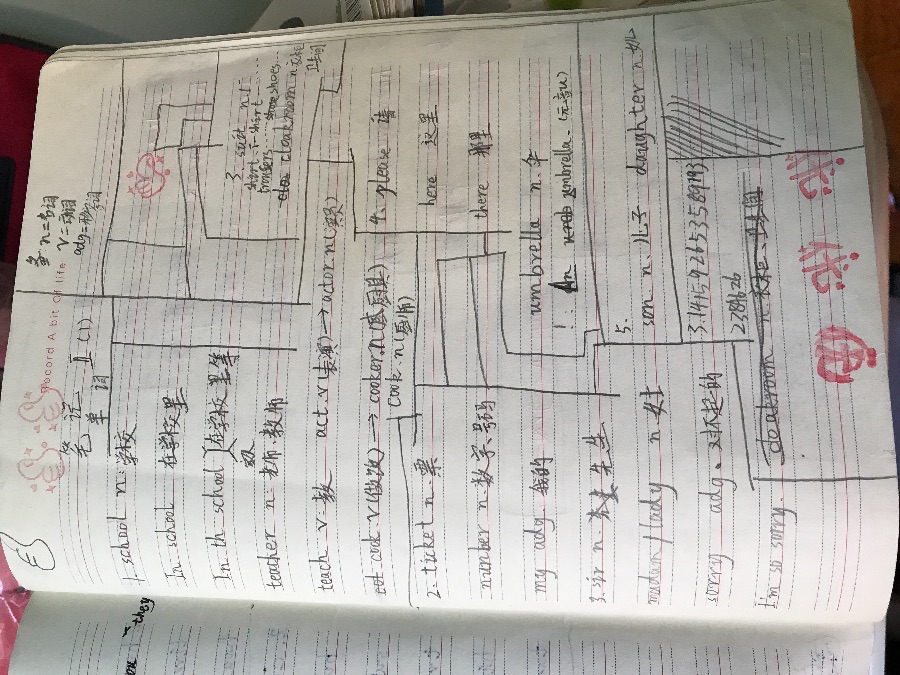 Record A bit Of life
笔记 II (1)
单词
n=名词
v=动词
adg=形容词
1. school n 学校
In school 在学校里
In th school 在学校里等
teacher n 老师 教师
teach v 教 act v(表演)→ actor n(演员)
cook v(做饭)→ cooker.n(厨具)
cook.n(厨师)
2. ticket n.票
number n 数字、号码
my adg. 我的
3. sir n 先生
madam / lady n 女士
sorry adg. 对不起的
I'm so sorry.
3. suit n.
short T-short
trousers shoe shoes
cloakroom n
4. please 请
here 这里
there 那里
umbrella n. 伞
An umbrella. (元音u)
5.
son n. 儿子 daughter n 女儿
3.14159265358979
they